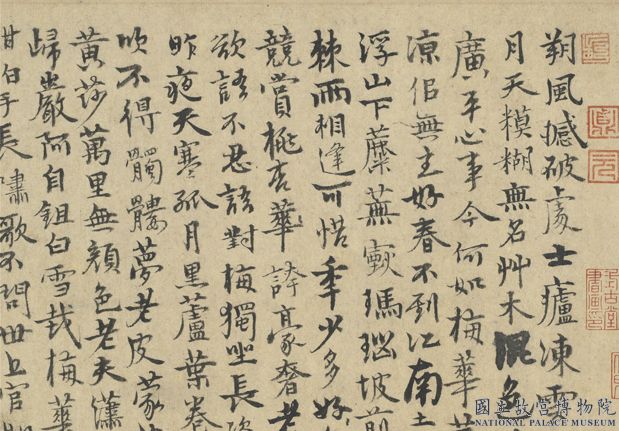 朔風撼破處士廬凍
月天糢糊無名艸木混色
廣平心事今何如梅華
凉佀無主好春不到江南
浮山下蘪蕪瑪瑙坡前
棘雨相逢可惜年少多
競賞桃杏華誇豪奢老
欲語不忍語對梅獨坐長
昨夜天寒孤月黑蘆葉卷
吹不得髑髏夢老皮蒙
黃莎萬里無顏色老夫瀟
歸巖阿自鉏白雪栽梅華
手長嘯歌不問世上官
國立故宮博物院
NATIONAL PALACE MUSEUM